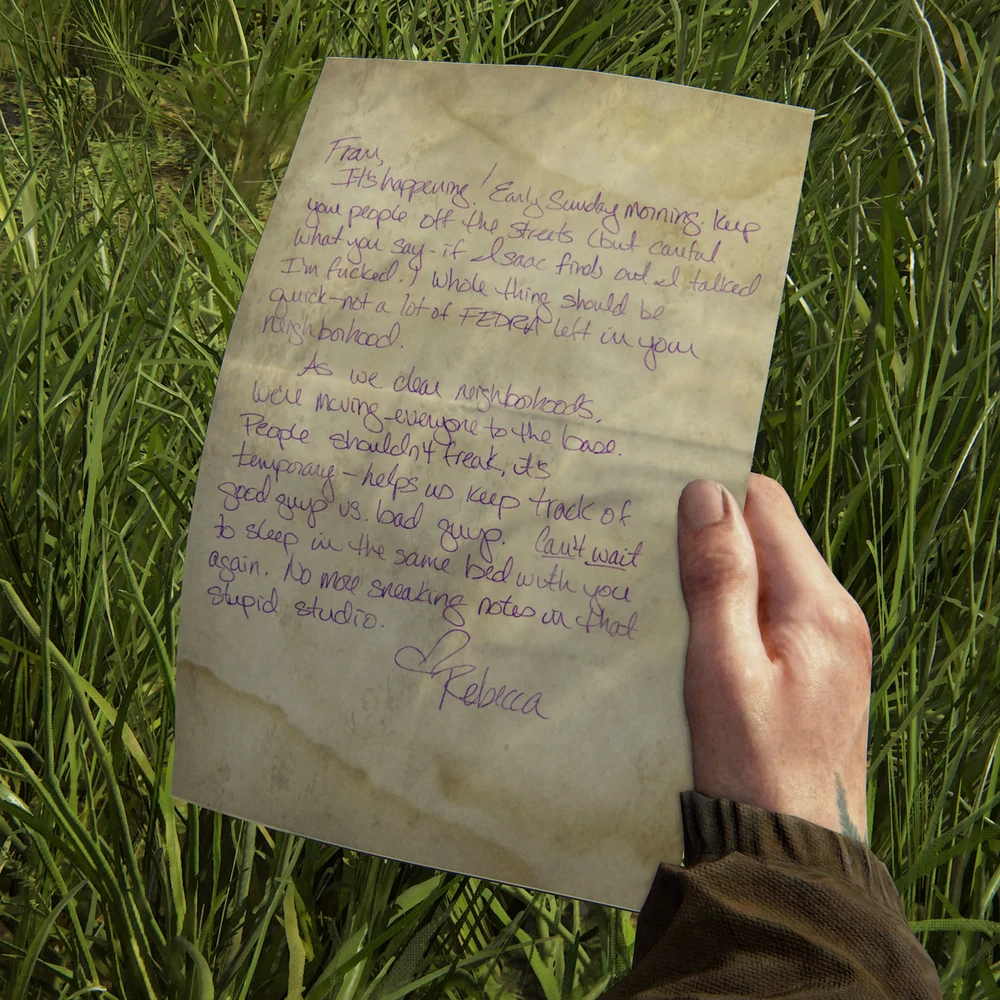 Fran,
It's happening! Early Sunday morning. Keep
your people off the streets (but careful
what you say - if Isaac finds out I talked
I'm fucked.) Whole thing should be
quick - not a lot of FEDRA left in your
neighborhood.
As we clear neighborhoods,
we're moving everyone to the base.
People shouldn't freak, it's
temporary - helps us keep track of
good guys vs. bad guys. Can't wait
to sleep in the same bed with you
again. No more sneaking notes in that
stupid studio.
♡ Rebecca